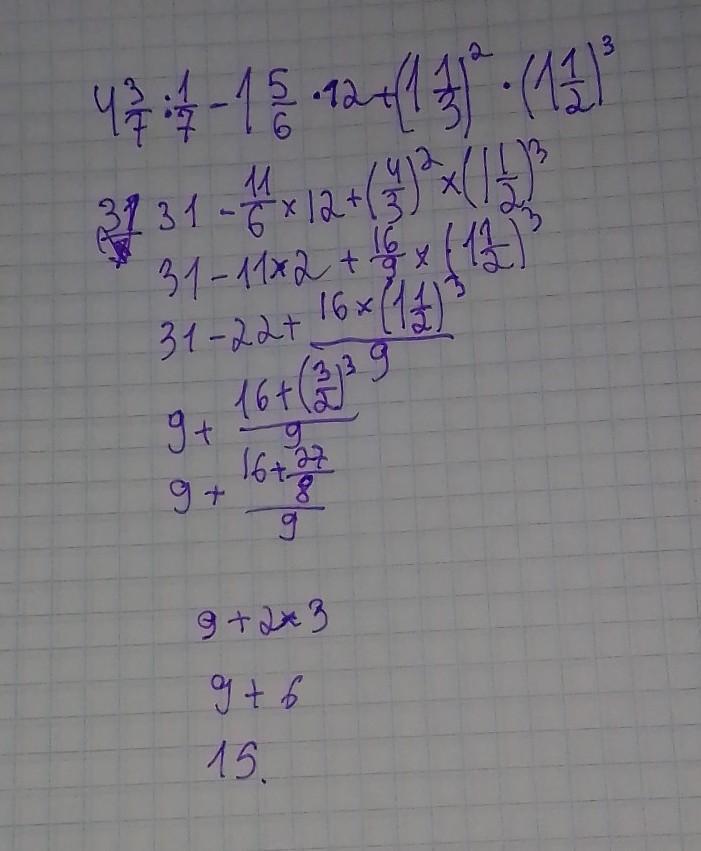 4 3/7 : 1/7 - 1 5/6 · 12 + (1 1/3)² · (1 1/2)³
31 31 - 11/6 × 12 + (4/3)² × (1 1/2)³
31 - 11×2 + 16/9 × (1 1/2)³
31 - 22 + 16×(1 1/2)³/9
9 + 16+(3/2)³/9
9 + 16+27/8/9
9 + 2×3
9 + 6
15.